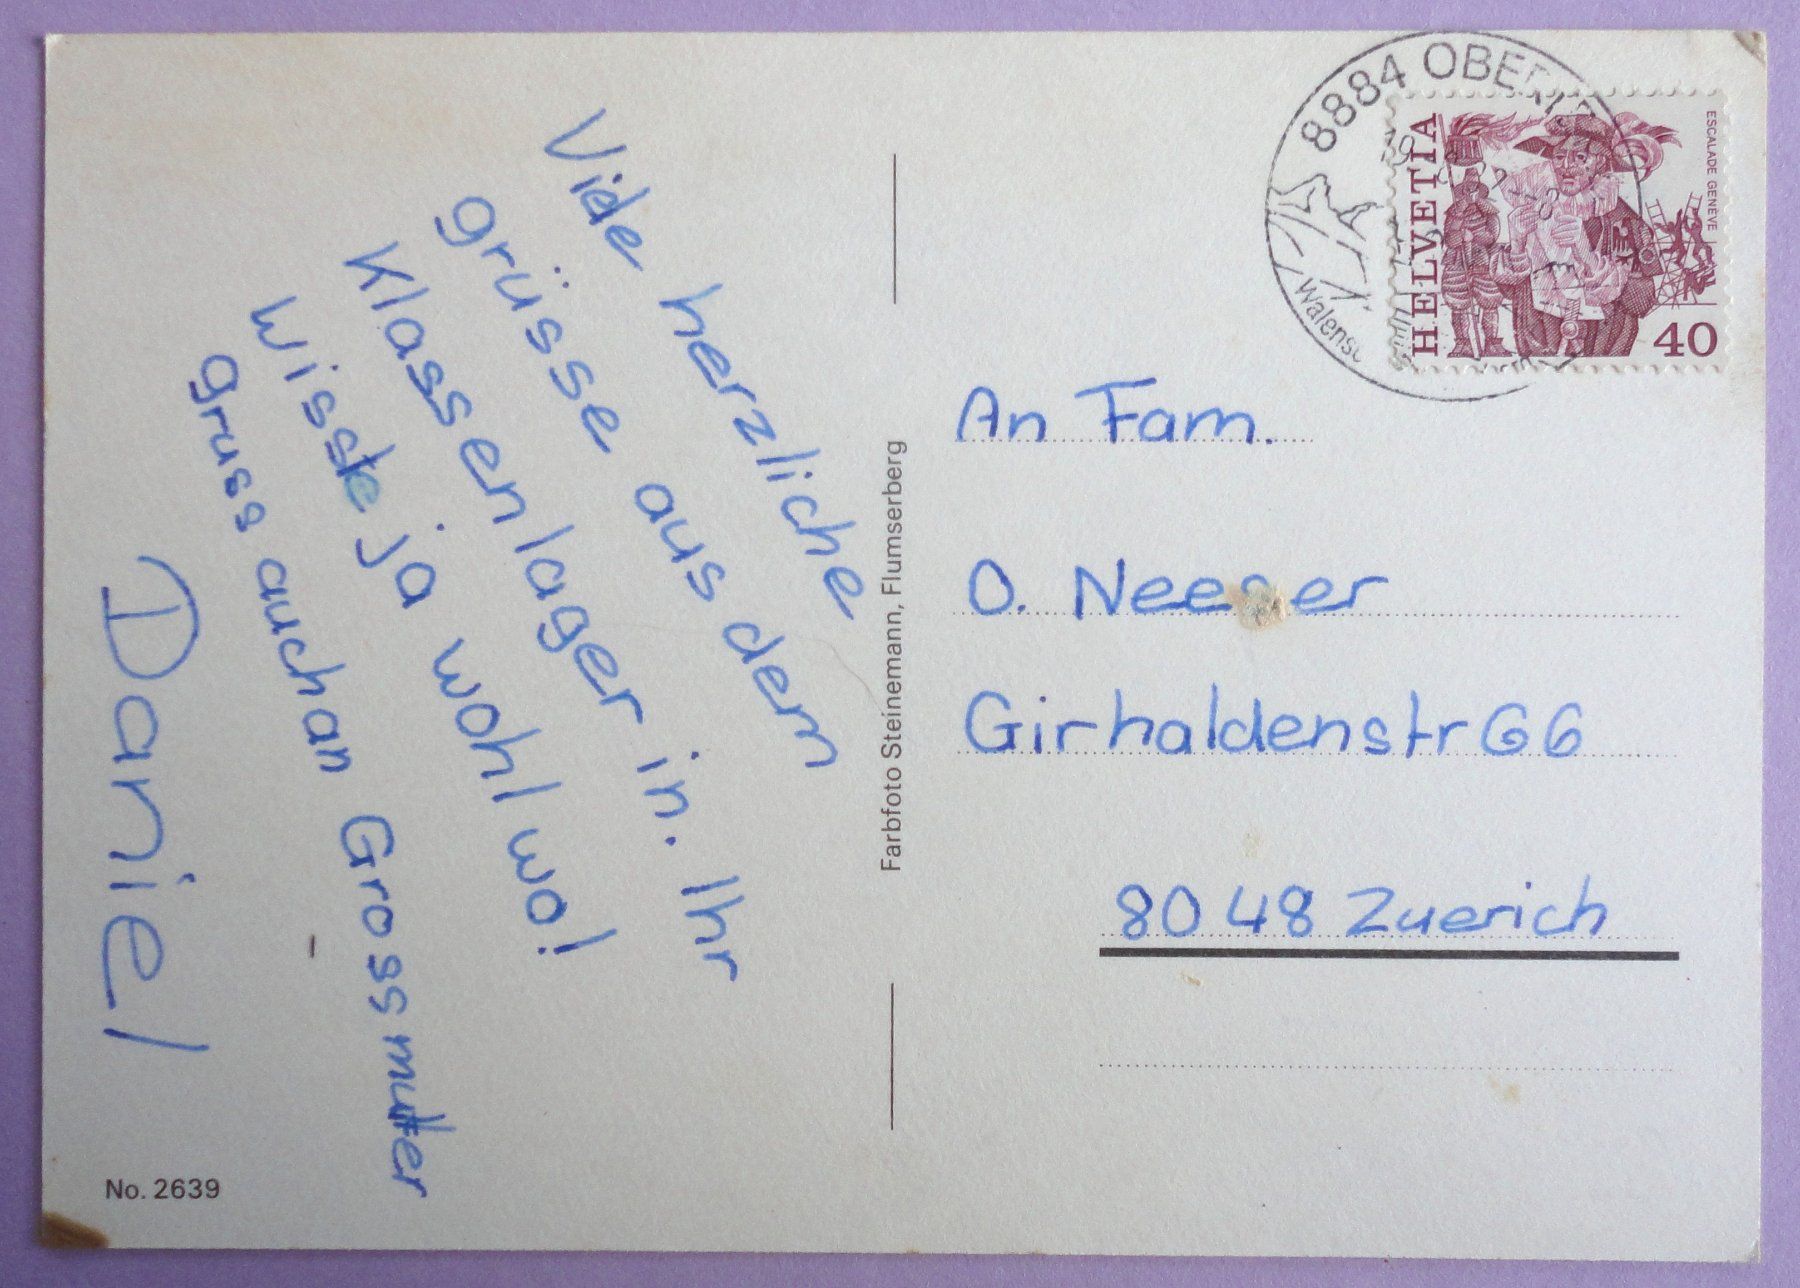 Viele herzliche
grüsse aus dem
Klassenlager in. Ihr
wisste ja wohl wo!
gruss auch an Grossmutter
Daniel
No. 2639
Farbfoto Steinemann, Flumserberg
8884
HELVETIA
ESCALADE GENÈVE
40
An Fam.
O. Neeser
Girhaldenstr 66
8048 Zuerich